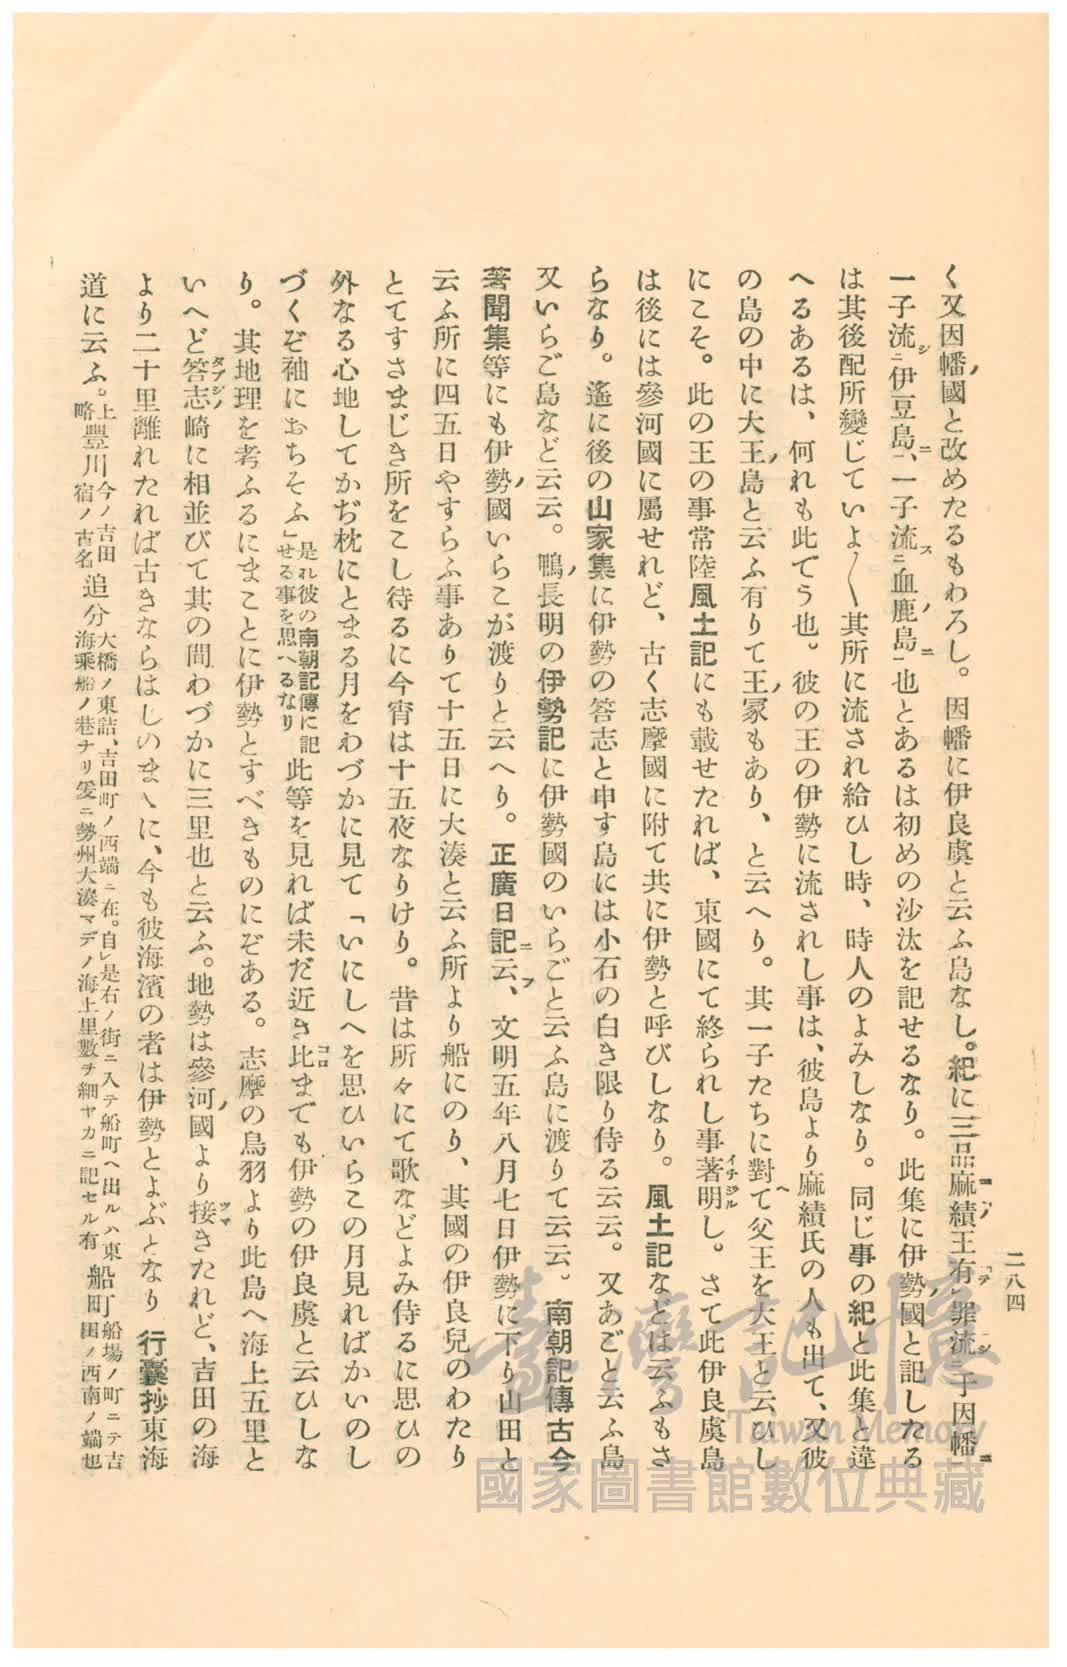 二八四
く又因幡ノ國と改めたるもわろし。因幡に伊良虞と云ふ島なし。紀に三品麻績王有罪流于因幡
一子流伊豆島、一子流血鹿島也とあるは初めの沙汰を記せるなり。此集に伊勢ノ國と記したる
は其後配所變じていよ〳〵其所に流され給ひし時、時人のよみしなり。同じ事の紀と此集と違
へるあるは、何れも此てう也。彼の王の伊勢に流されし事は、彼島より麻績氏の人も出て、又彼
の島の中に大王ノ島と云ふ有りて王ノ冢もあり、と云へり。其一子たちに對て父王を大王と云ひし
にこそ。此の王の事常陸風土記にも載せたれば、東國にて終られし事著明し。さて此伊良虞島
は後には參河國に屬せれど、古く志摩國に附て共に伊勢と呼びしなり。風土記などは云ふもさ
らなり。遙に後の山家集に伊勢の答志と申す島には小石の白き限り侍る云云。又あごと云ふ島
又いらご島など云云。鴨ノ長明の伊勢記に伊勢國のいらごと云ふ島に渡りて云云。南朝記傳古今
著聞集等にも伊勢ノ國いらこが渡りと云へり。正廣日記云、文明五年八月七日伊勢に下り山田と
云ふ所に四五日やすらふ事ありて十五日に大湊と云ふ所より船にのり、其國の伊良兒のわたり
とてすさまじき所をこし待るに今宵は十五夜なりけり。昔は所々にて歌などよみ侍るに思ひの
外なる心地してかぢ枕にとまる月をわづかに見て「いにしへを思ひいらこの月見ればかいのし
づくぞ袖におちそふ」是れ彼の南朝記傳に記せる事を思へるなり此等を見れば未だ近き比までも伊勢の伊良虞と云ひしな
り。其地理を考ふるにまことに伊勢とすべきものにぞある。志摩の鳥羽より此島へ海上五里と
いへど答志ノ崎に相並びて其の間わづかに三里也と云ふ。地勢は參河ノ國より接きたれど、吉田の海
より二十里離れたれば古きならはしのまゝに、今も彼海濱の者は伊勢とよぶとなり 行囊抄東海
道に云ふ。上略豐川今ノ吉田宿ノ古名追分大橋ノ東詰、吉田町ノ西端ニ在。自是右ノ街ニ入テ船町ヘ出ルハ東海乘船ノ巷ナリ爰ニ勢州大湊マデノ海上里數ヲ細ヤカニ記セル有船町船場ノ町ニテ吉田ノ西南ノ端也
臺灣記憶
Taiwan Memory
國家圖書館數位典藏